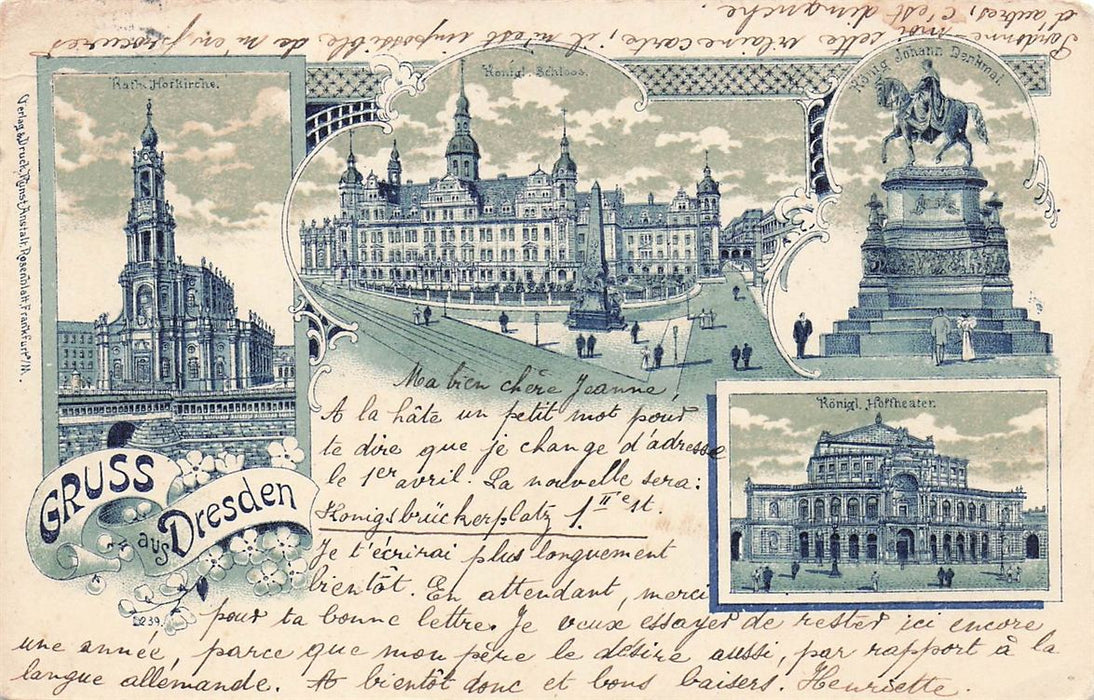 Pardonne-moi cette vilaine carte, il m'est impossible de m'en procurer
d'autres, c'est dimanche.
Kath. Hofkirche.
Königl. Schloss.
König Johann Denkmal.
Verlag & Druck, Kunst Anstalt Rosenblatt, Frankfurt a/M.
Königl. Hoftheater.
GRUSS
aus Dresden
239.
Ma bien chère Jeanne,
A la hâte un petit mot pour
te dire que je change d'adresse
le 1er avril. La nouvelle sera:
Konigsbrückerplatz 1. IIe st.
Je t'écrirai plus longuement
bientôt. En attendant, merci
pour ta bonne lettre. Je veux essayer de rester ici encore
une année, parce que mon père le désire aussi, par rapport à la
langue allemande. A bientôt donc et bons baisers. Henriette.